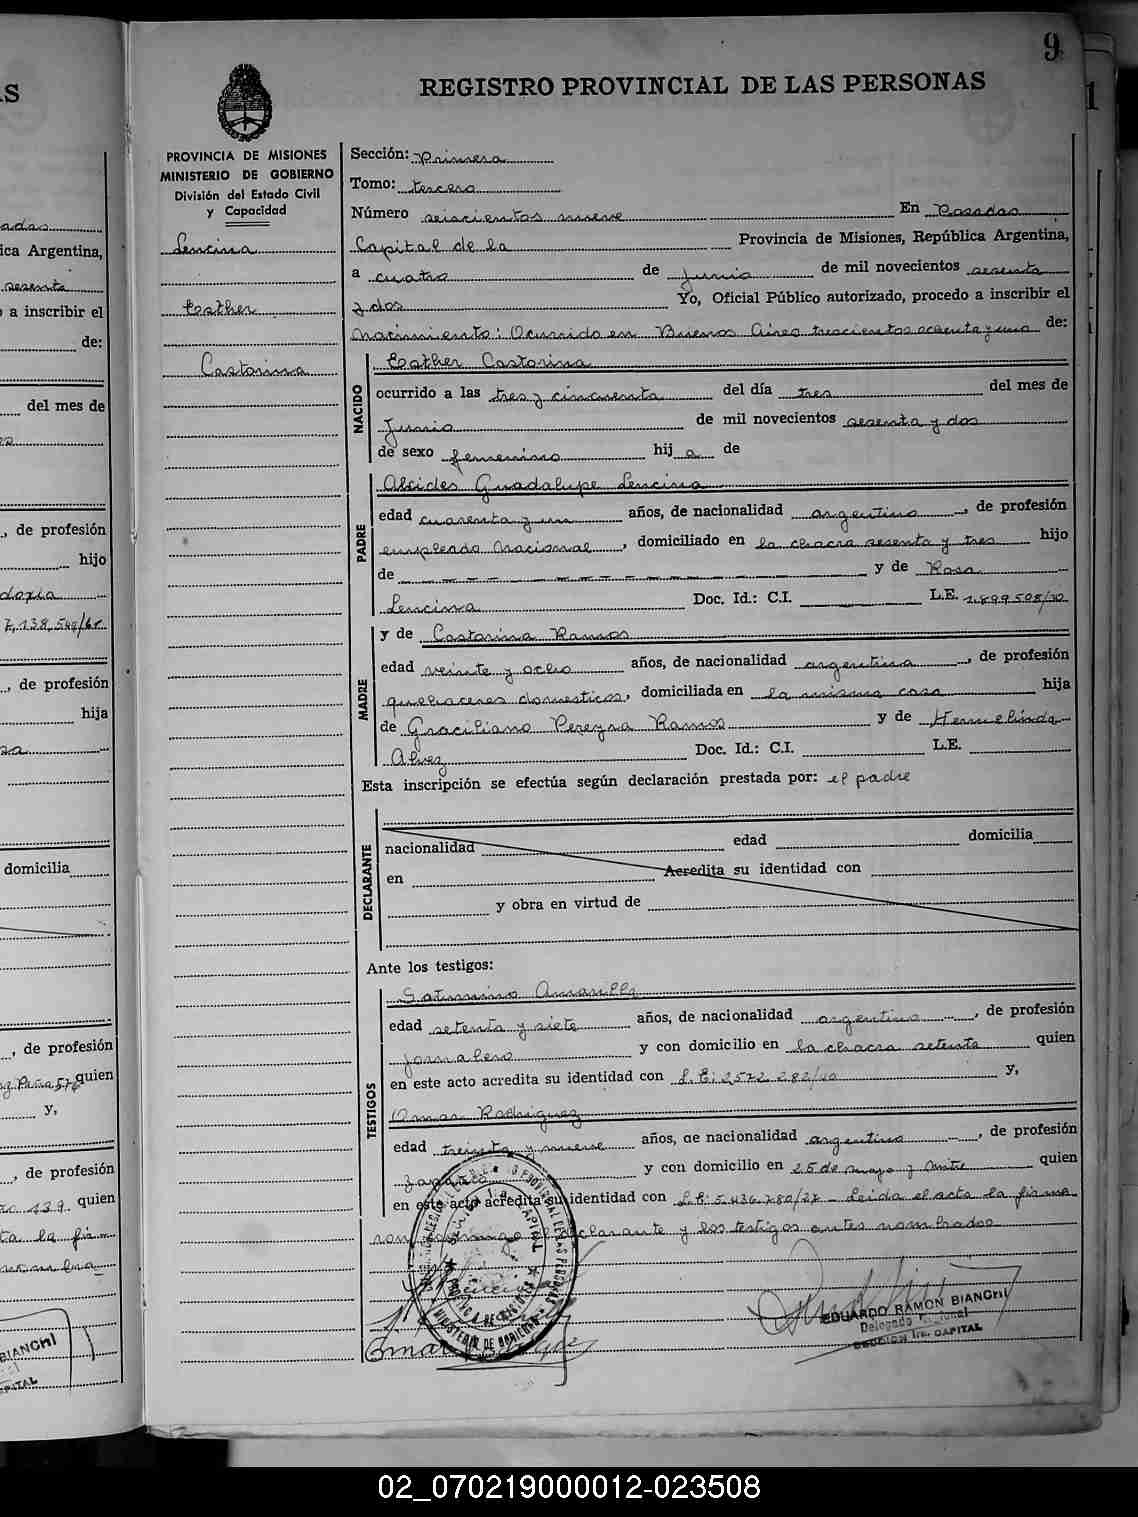 9
REGISTRO PROVINCIAL DE LAS PERSONAS
PROVINCIA DE MISIONES
MINISTERIO DE GOBIERNO
División del Estado Civil
y Capacidad
Lencina
Esther
Castorina
Sección: Primera
Tomo: tercero
Número seiscientos nueve En Posadas
Capital de la Provincia de Misiones, República Argentina,
a cuatro de Junio de mil novecientos sesenta
y dos Yo, Oficial Público autorizado, procedo a inscribir el
nacimiento: Ocurrido en Buenos Aires trescientos ochenta y uno de:
NACIDO
Esther Castorina
ocurrido a las tres y cincuenta del día tres del mes de
Junio de mil novecientos sesenta y dos
de sexo femenino hij a de
PADRE
Alcides Guadalupe Lencina
edad cuarenta y un años, de nacionalidad argentino, de profesión
empleado nacional, domiciliado en la chacra sesenta y tres hijo
de y de Rosa
Lencina Doc. Id.: C.I. L.E. 1.899.508/10
MADRE
y de Castorina Ramos
edad veinte y ocho años, de nacionalidad argentina, de profesión
quehaceres domesticos, domiciliada en la misma casa hija
de Graciliano Pereyra Ramos y de Hermelinda
Alvez Doc. Id.: C.I. L.E.
Esta inscripción se efectúa según declaración prestada por: el padre
DECLARANTE
nacionalidad edad domicilia
en Acredita su identidad con
y obra en virtud de
Ante los testigos:
TESTIGOS
Saturnino
edad setenta y siete años, de nacionalidad argentino, de profesión
jornalero y con domicilio en la chacra setenta quien
en este acto acredita su identidad con L.E: 2572.282/10 y,
Omar Rodriguez
edad treinta y nueve años, de nacionalidad argentino, de profesión
zapatero y con domicilio en 25 de mayo y Mitre quien
en este acto acredita su identidad con L.E: 5.436.780/27 - Leida el acta la firma
ron conmigo declarante y los testigos antes nombrados
Omar
EDUARDO RAMON BIANCHI
Delegado
SECCION 1ra. CAPITAL
02_070219000012-023508